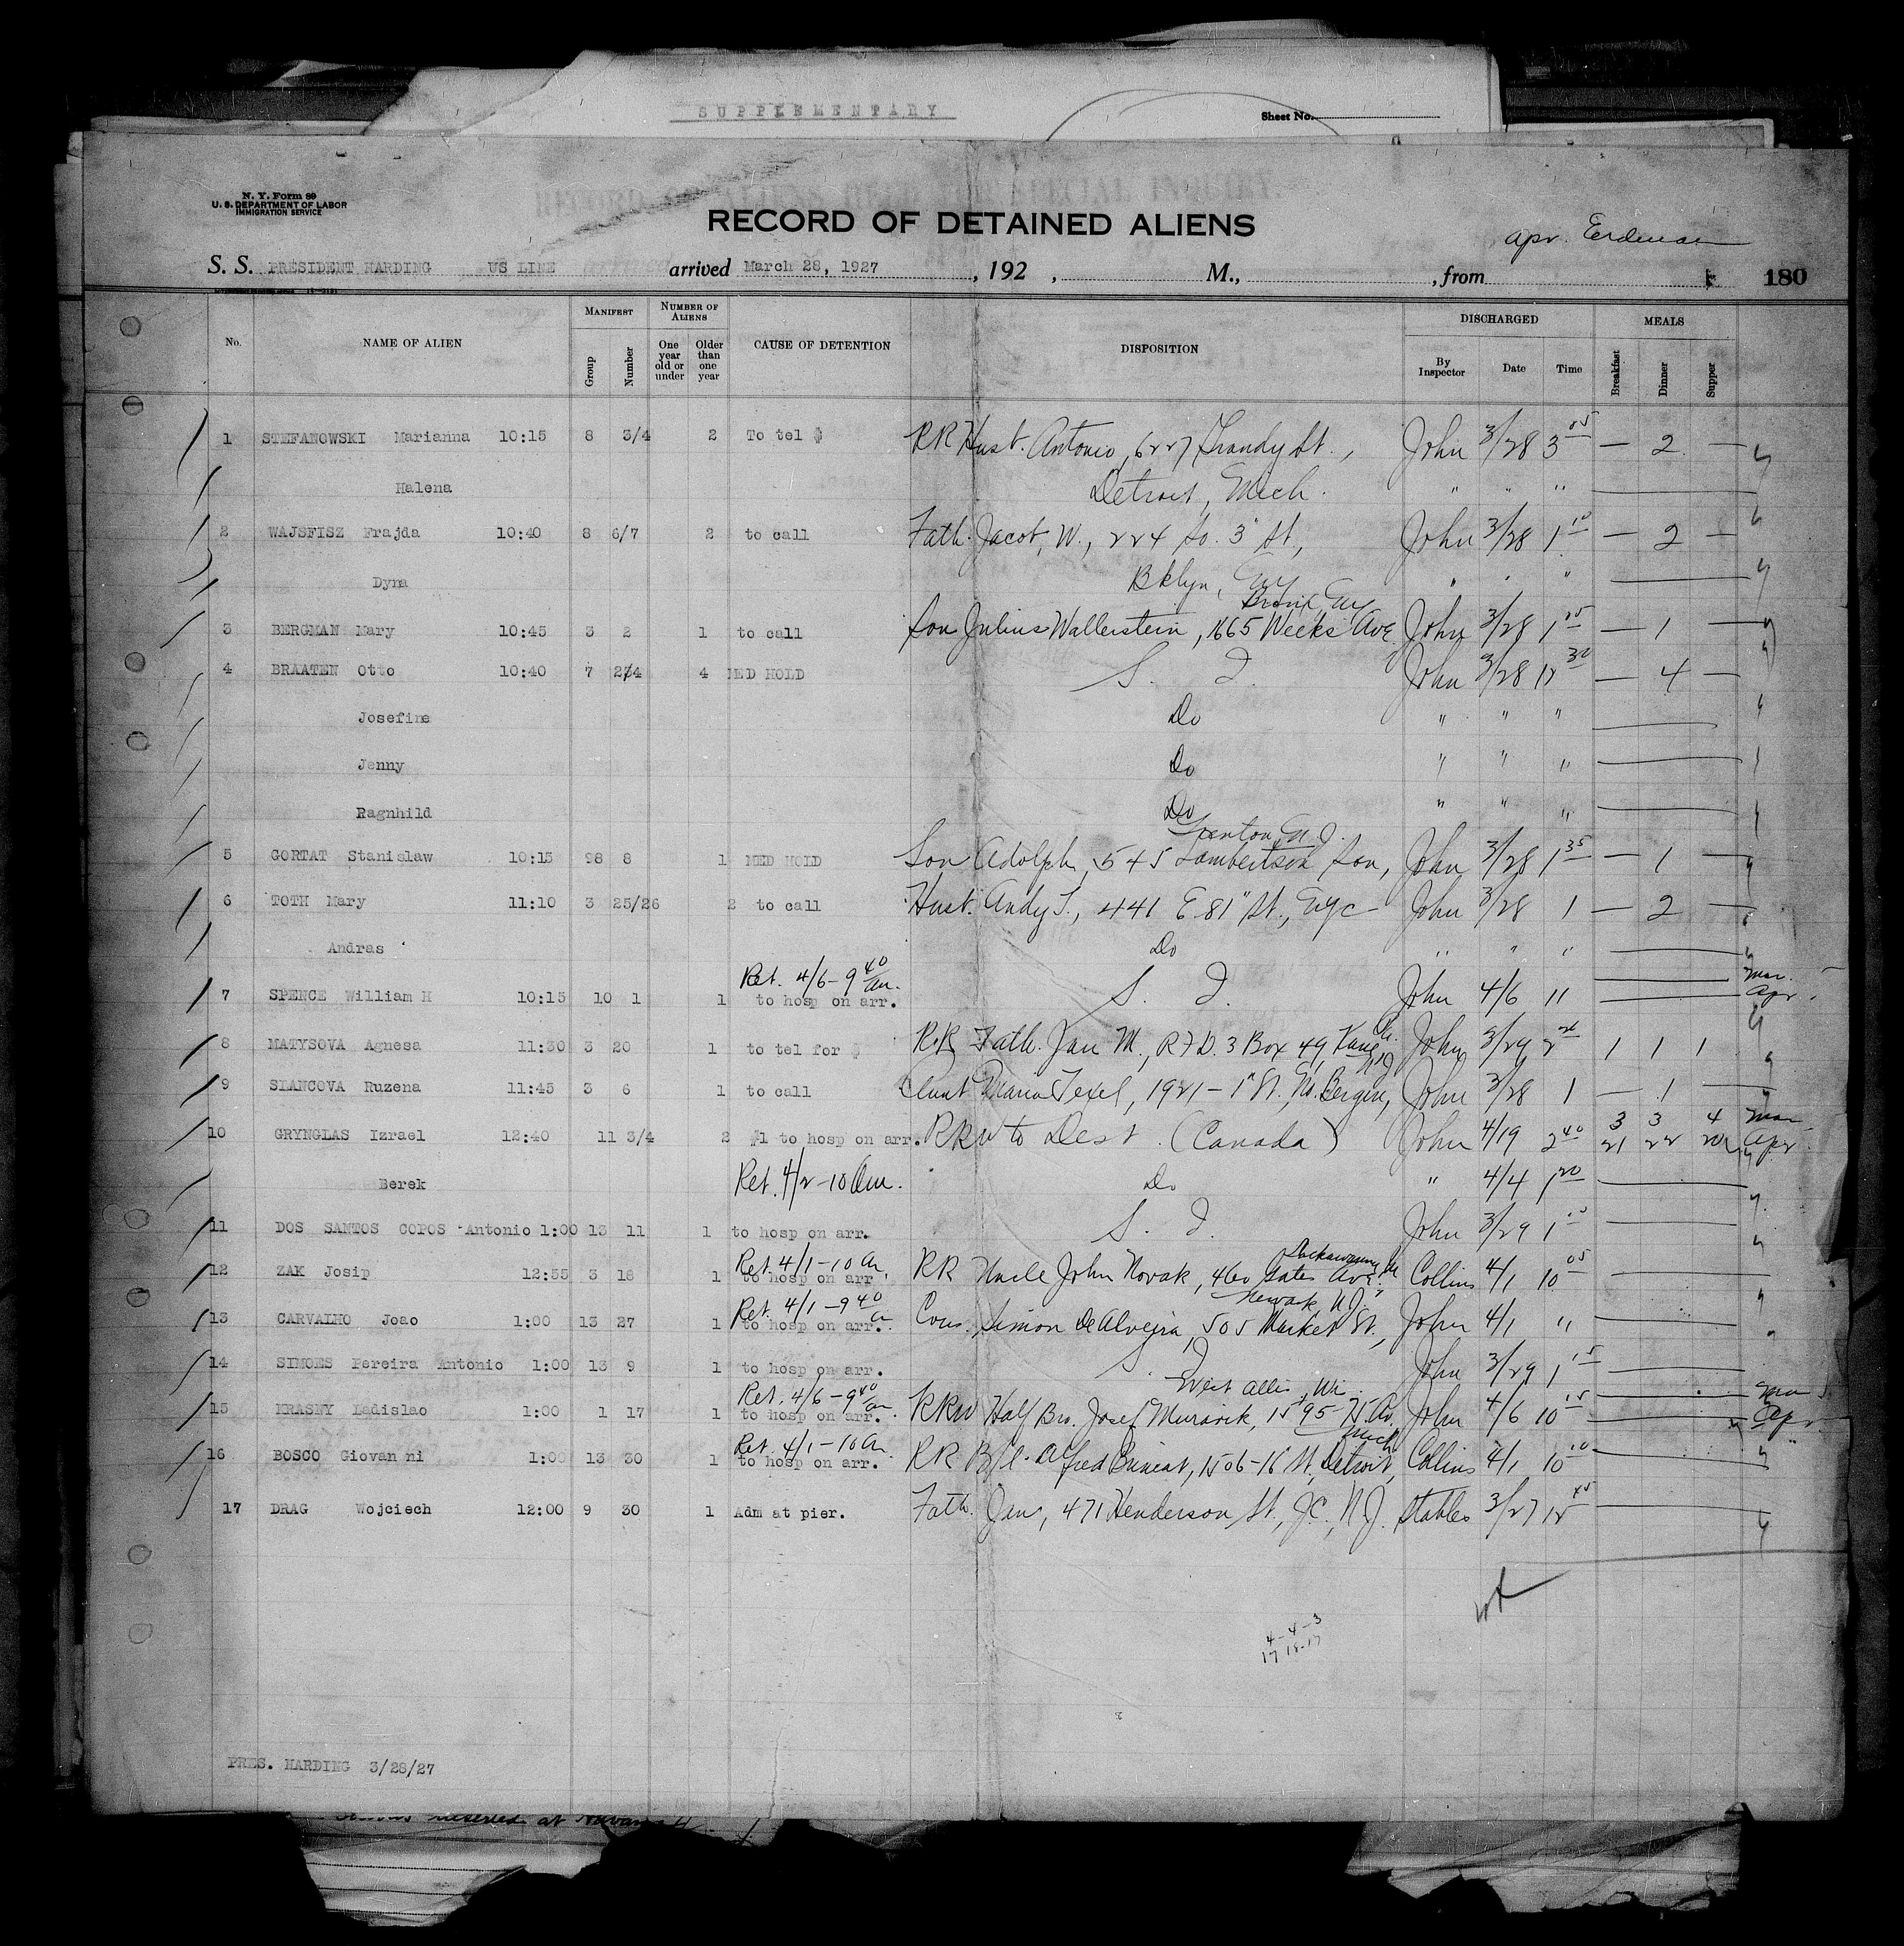 SUPPLEMENTARY
Sheet No.
N. Y. Form 89
U. S. DEPARTMENT OF LABOR
IMMIGRATION SERVICE
RECORD OF DETAINED ALIENS
apr. Erdman
S. S. PRESIDENT HARDING US LINE arrived March 28, 1927, 192 , M., , from 180
No. NAME OF ALIEN MANIFEST Group Number NUMBER OF ALIENS One year old or under Older than one year CAUSE OF DETENTION DISPOSITION DISCHARGED By Inspector Date Time MEALS Breakfast Dinner Supper
1 STEFANOWSKI Marianna 10:15 8 3/4 2 To tel $ RR Husb. Antonio, 6227 Grandy St., John 3/28 3 05 — 2 —
Halena Detroit, Mich. " " "
2 WAJSFISZ Frajda 10:40 8 6/7 2 to call Fath. Jacob, W., 224 So. 3" St, John 3/28 1 10 — 2 —
Dyna Bklyn, NY " " "
Bronx, NY
3 BERGMAN Mary 10:45 3 2 1 to call Son Julius Wallerstein, 1665 Weeks Ave John 3/28 1 05 — 1 —
4 BRAATEN Otto 10:40 7 2/4 4 MED HOLD S. I. John 3/28 12 30 — 4 —
Josefine Do " " "
Jenny Do " " "
Ragnhild Do " " "
Trenton, N.J.
5 GORTAT Stanislaw 10:15 98 8 1 MED HOLD Son Adolph, 545 Lambertson John 3/28 1 35 — 1 —
6 TOTH Mary 11:10 3 25/26 2 to call Husb. Andy T., 441 E 81" St., NYC John 3/28 1 — 2 —
Andras Do " " "
Ret. 4/6 - 9 40 am. Mar.
7 SPENCE William H 10:15 10 1 1 to hosp on arr. S. I. John 4/6 11 Apr.
8 MATYSOVA Agnesa 11:30 3 20 1 to tel for $ RR Fath. Jan M., RFD. 3 Box 49, John 3/29 2 1 1 1
9 SLANCOVA Ruzena 11:45 3 6 1 to call Aunt Maria Texel, 1921 - 1" St., N. Bergen, NJ John 3/28 1 — 1 —
3 3 4 Mar
10 GRYNGLAS Izrael 12:40 11 3/4 2 #1 to hosp on arr. RRW to Dest. (Canada) John 4/19 2 40 21 22 20 Apr
Berek Ret. 4/2 - 10 am. Do " 4/4 1 20
11 DOS SANTOS COPOS Antonio 1:00 13 11 1 to hosp on arr. S. I. John 3/29 1
Ret. 4/1 - 10 am. Lackawanna
12 ZAK Josip 12:55 3 18 1 to hosp on arr RR Uncle John Novak, 460 Gates Ave. Collins 4/1 10 05
Ret. 4/1 - 9 40 a Newark, N.J.
13 CARVALHO Joao 1:00 13 27 1 to hosp on arr. Cous. Simon De Alveira, 505 Market St., John 4/1 "
14 SIMOES Pereira Antonio 1:00 13 9 1 to hosp on arr. S. I. John 3/29 1 15
Ret. 4/6 - 9 40 am West Allis, Wi. Mar
15 KRASNY Ladislao 1:00 1 17 1 to hosp on arr. RRW Half Bro. Josef Muravik, 1595 - 75 Av. John 4/6 10 15 Apr
Ret. 4/1 - 10 am. Mich
16 BOSCO Giovanni 1:00 13 30 1 to hosp on arr. RR B/l. Alfred Bruneat, 1506 - 16 St, Detroit, Collins 4/1 10 10
17 DRAG Wojciech 12:00 9 30 1 Adm at pier. Fath. Jan, 471 Henderson St., J.C., N.J. Stables 3/27 12 45
4 - 4 - 3
17 18 - 17
PRES. HARDING 3/28/27